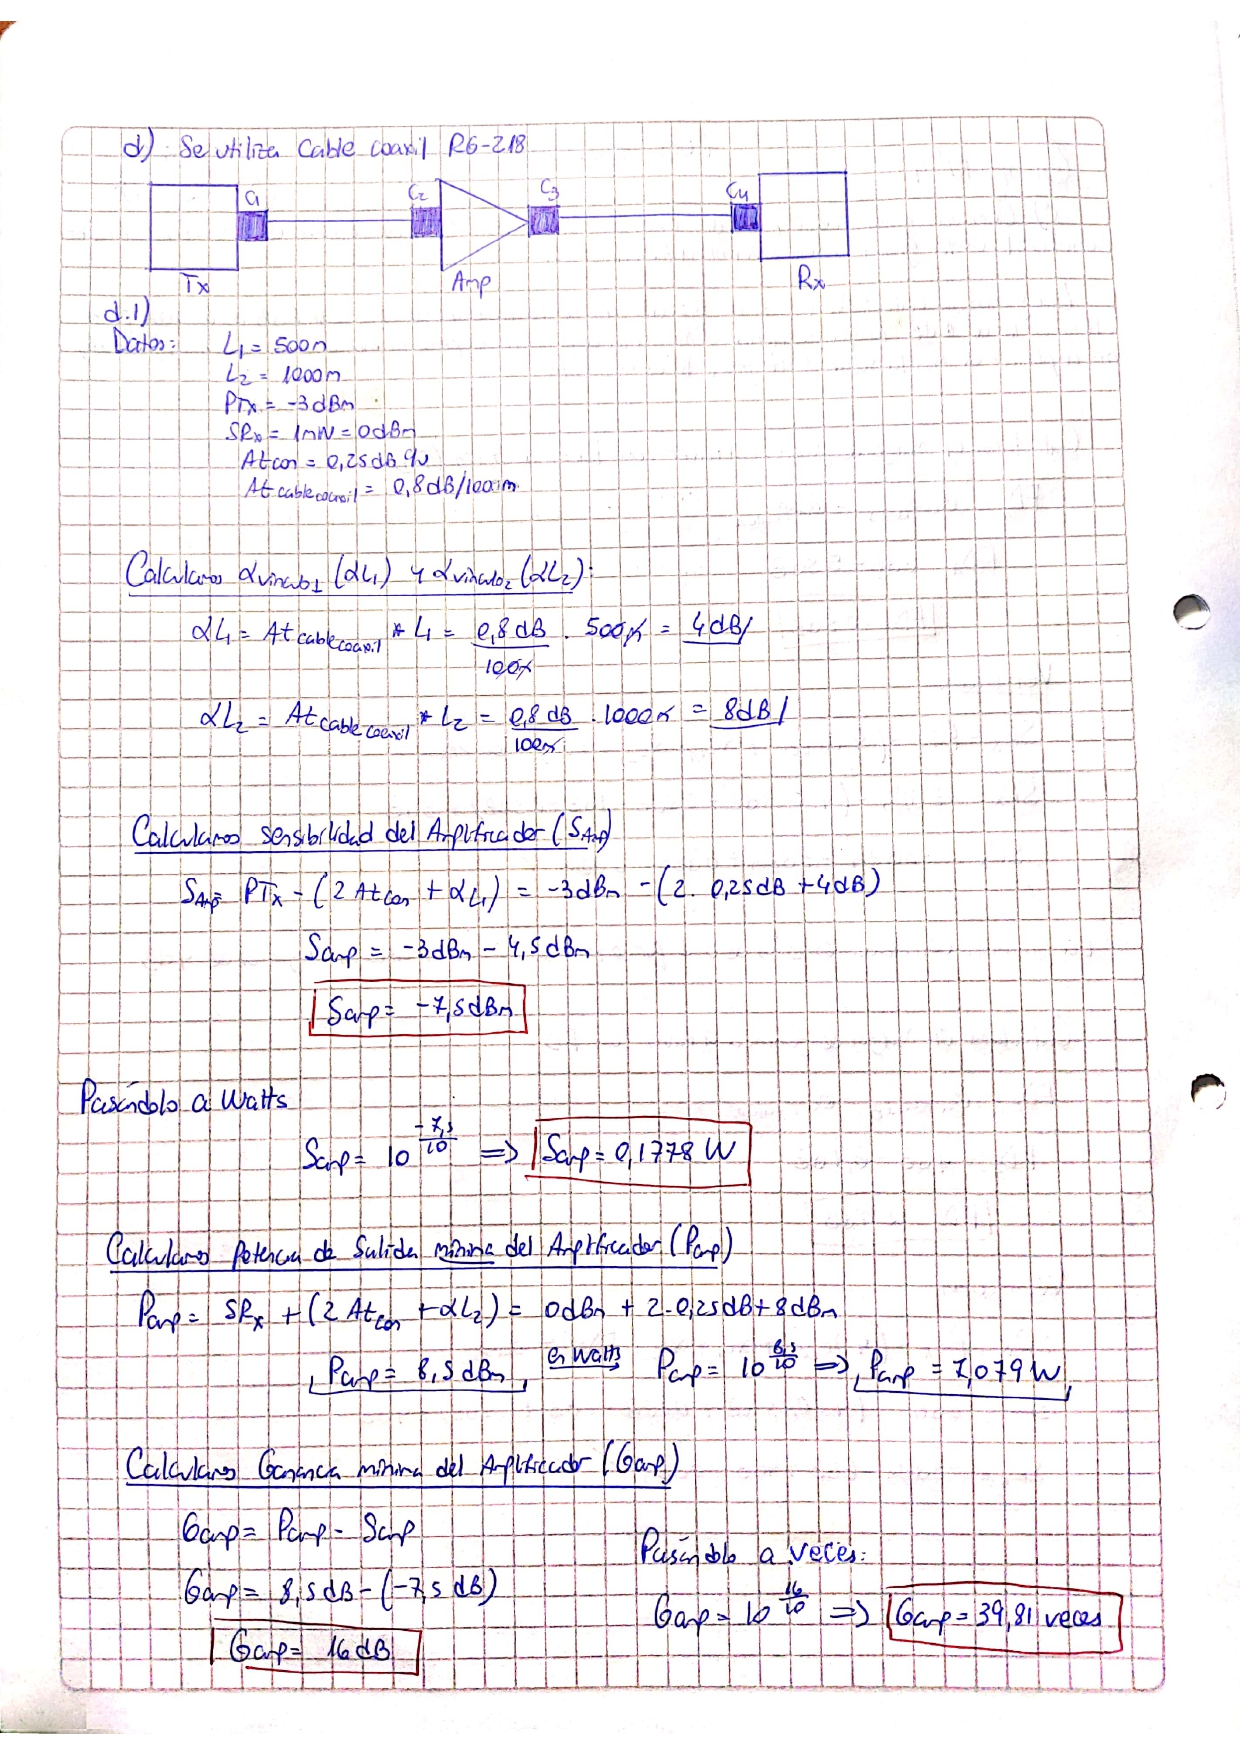 d) Se utiliza Cable coaxil RG-218
C1 C2 C3 C4
Tx Amp Rx
d.1)
Datos: L1 = 500m
L2 = 1000m
PTx = -3dBm
SRx = 1mW = 0dBm
Atcon = 0,25dB c/u
At cable coaxil = 0,8dB/100m
Calculamos αvinculo1 (αL1) y αvinculo2 (αL2):
αL1 = At cable coaxil * L1 = 0,8 dB/100m . 500m = 4dB/
αL2 = At cable coaxil * L2 = 0,8 dB/100m . 1000m = 8dB/
Calculamos sensibilidad del Amplificador (SAmp)
SAmp = PTx - (2 Atcon + αL1) = -3dBm - (2. 0,25dB + 4dB)
Samp = -3dBm - 4,5dBm
Samp = -7,5dBm
Pasándolo a Watts
Samp = 10^(-7,5/10) => Samp = 0,1778 W
Calculamos Potencia de Salida mínima del Amplificador (Pamp)
Pamp = SRx + (2 Atcon + αL2) = 0dBm + 2.0,25dB + 8dBm
Pamp = 8,5dBm en Watts Pamp = 10^(8,5/10) => Pamp = 7,079W
Calculamos Ganancia mínima del Amplificador (Gamp)
Gamp = Pamp - Samp
Pasándolo a veces:
Gamp = 8,5dB - (-7,5dB)
Gamp = 10^(16/10) => Gamp = 39,81 veces
Gamp = 16dB